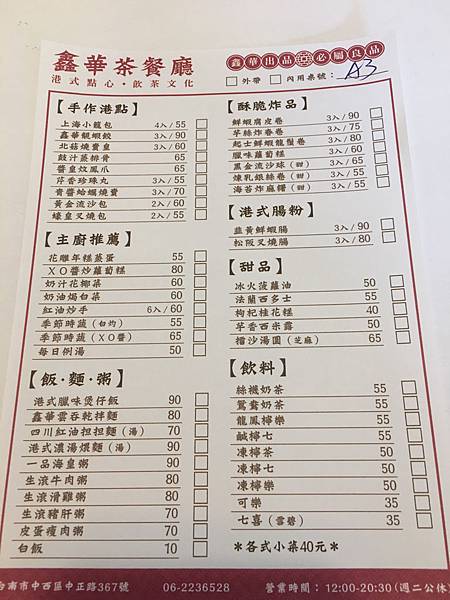 鑫華茶餐廳
港式點心·飲茶文化
鑫華出品 必屬良品
外帶 內用桌號: A3
【手作港點】
上海小籠包 4入/55
鑫華靚蝦餃 3入/90
北菇燒賣皇 3入/60
豉汁蒸排骨 65
醬皇炆鳳爪 65
芹香珍珠丸 3入/55
貴醬蛤蠣燒賣 3入/70
黃金流沙包 2入/60
蠔皇叉燒包 2入/55
【主廚推薦】
花雕年糕蒸蛋 55
ＸＯ醬炒蘿蔔糕 80
奶汁花椰菜 60
奶油焗白菜 60
紅油炒手 6入/60
季節時蔬(白灼) 55
季節時蔬(ＸＯ醬) 65
每日例湯 50
【飯·麵·粥】
港式臘味煲仔飯 90
鑫華雲吞乾拌麵 80
四川紅油担担麵(湯) 70
港式濃湯煨麵(湯) 90
一品海皇粥 90
生滾牛肉粥 80
生滾滑雞粥 80
生滾豬肝粥 70
皮蛋瘦肉粥 70
白飯 10
【酥脆炸品】
鮮蝦腐皮卷 3入/90
芋絲炸春卷 3入/75
起士鮮蝦龍鬚卷 3入/90
臘味蘿蔔糕 3入/60
黑金流沙球(甜) 3入/65
煉乳銀絲卷(甜) 3入/55
海苔炸麻糬(甜) 3入/55
【港式腸粉】
韭黃鮮蝦腸 3入/90
松阪叉燒腸 3入/80
【甜品】
冰火菠蘿油 50
法蘭西多士 65
枸杞桂花糕 40
芋香西米露 50
擂沙湯圓(芝麻) 65
【飲料】
絲襪奶茶 55
鴛鴦奶茶 55
龍鳳檸樂 55
鹹檸七 55
凍檸茶 50
凍檸七 50
凍檸樂 50
可樂 35
七喜(雪碧) 35
＊各式小菜40元＊
台南市中西區中正路367號 06-2236528 營業時間：12:00-20:30(週二公休)